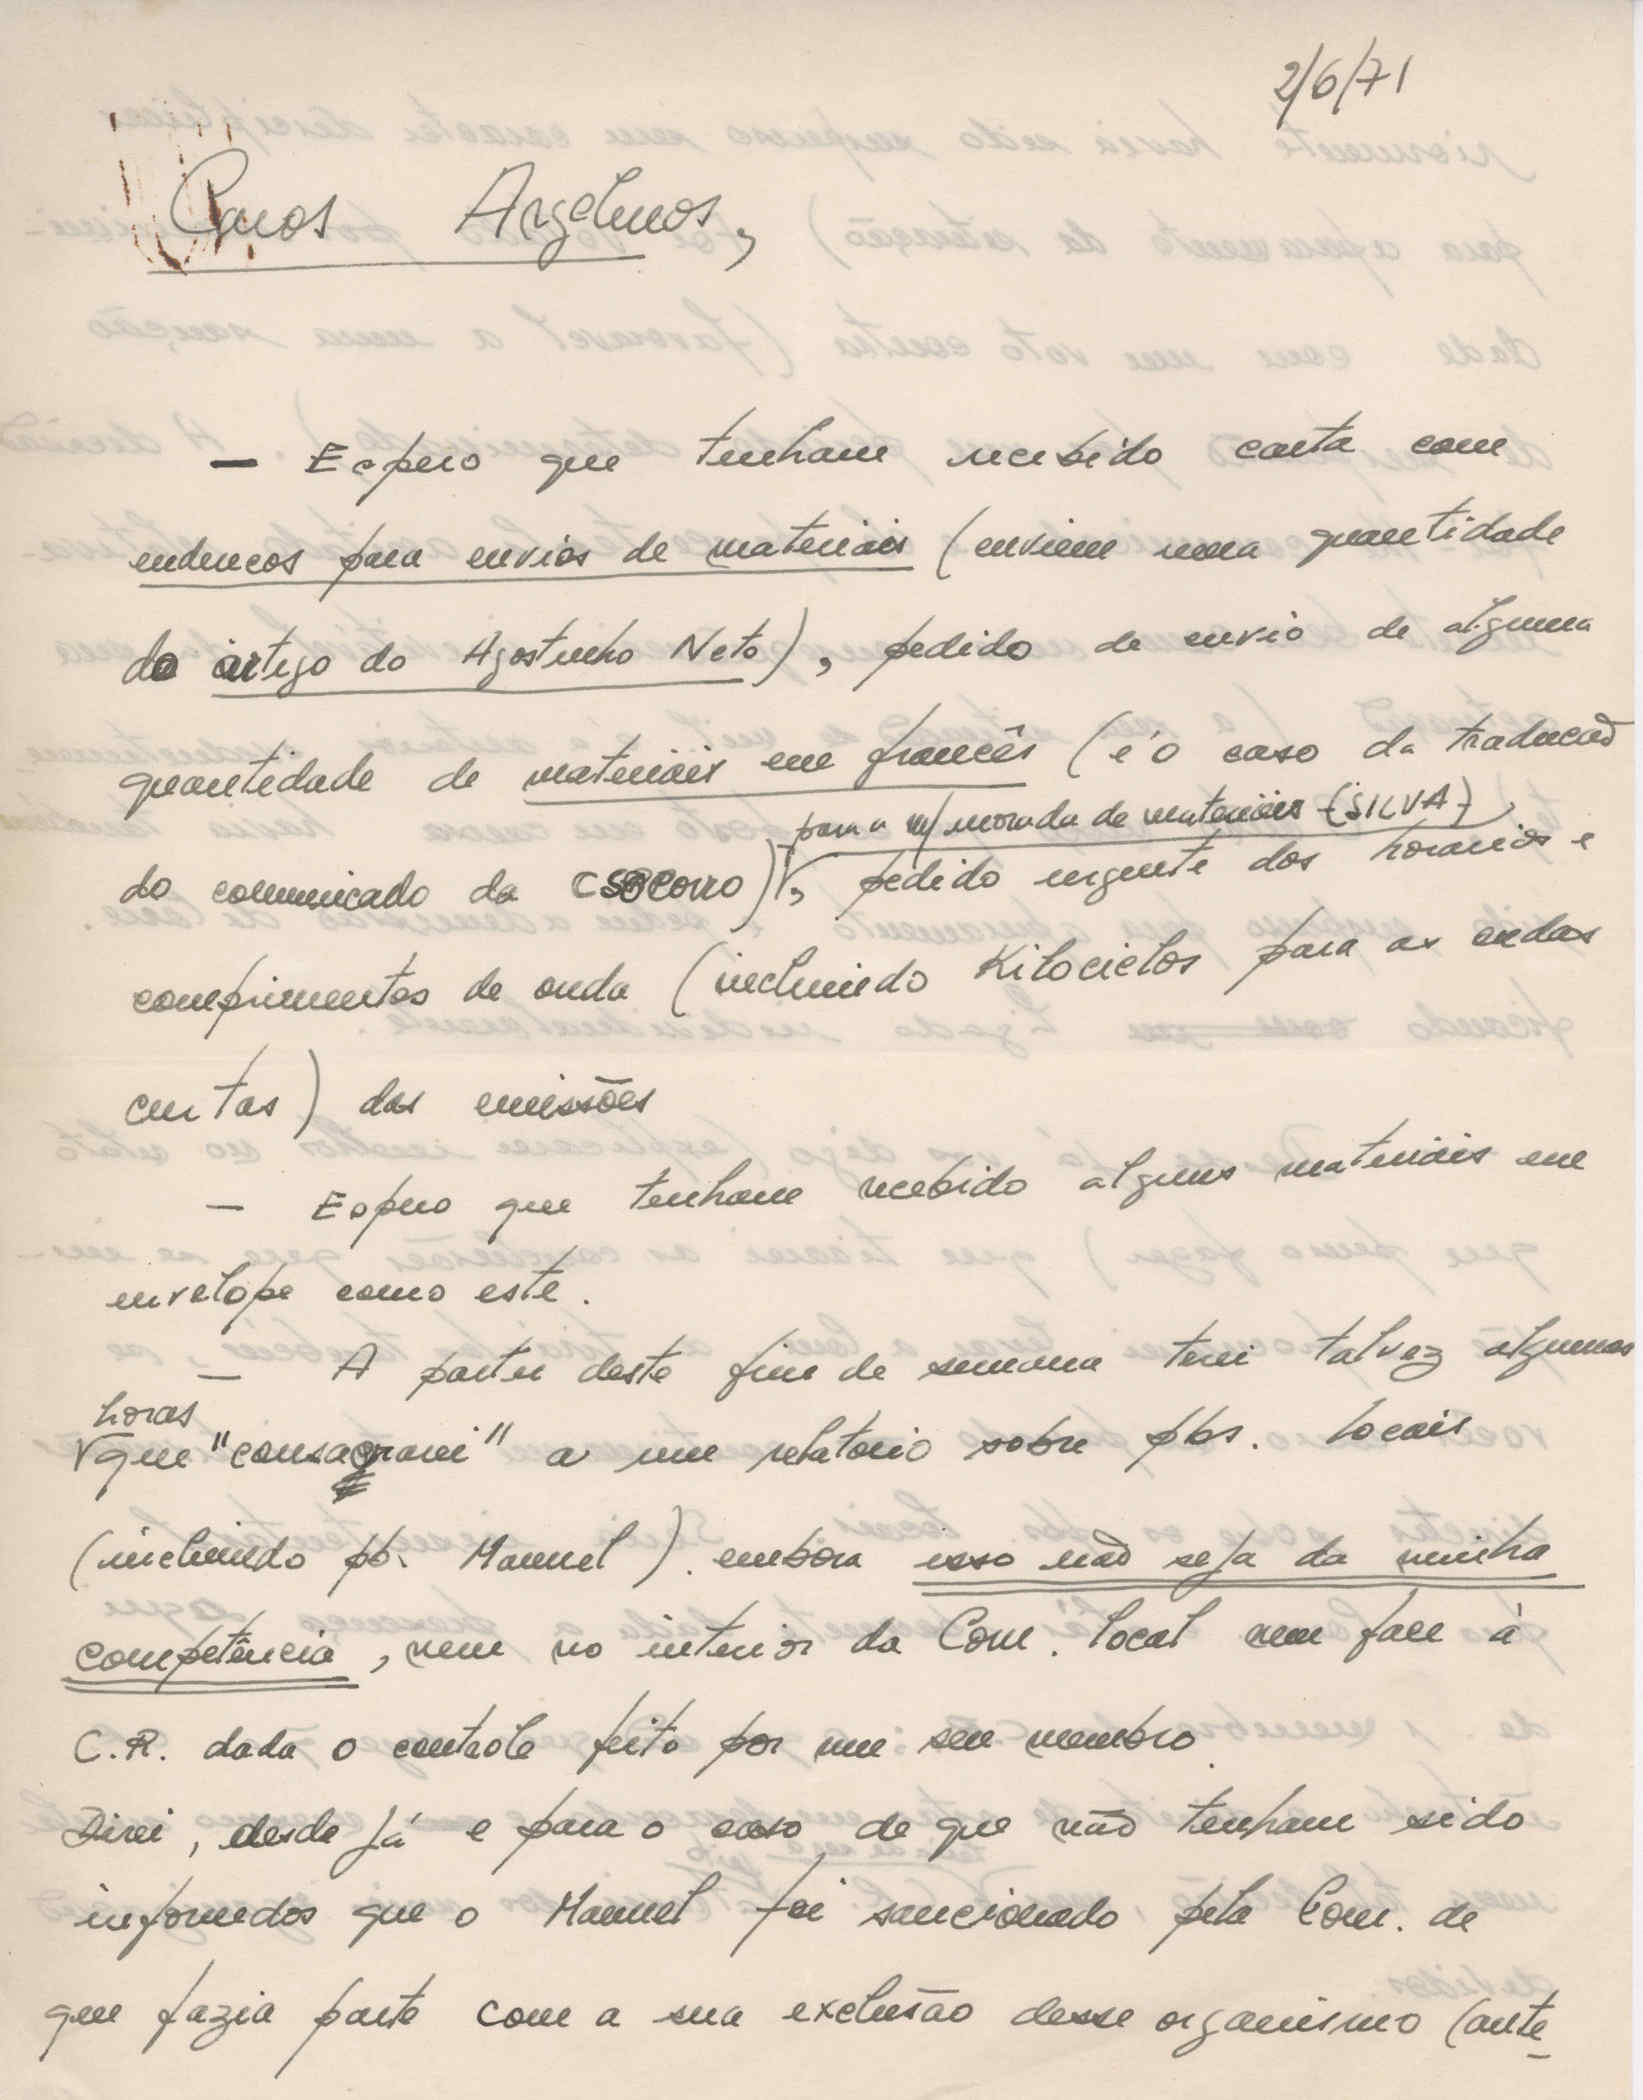 2/6/71
Caros Argelinos,
— Espero que tenham recebido carta com
endereços para envios de materiais (enviem uma quantidade
do artigo do Agostinho Neto), pedido de envio de alguma
quantidade de materiais em francês (é o caso da traducão
para a m/ morada de materiais (SILVA)
do comunicado da CSOCORRO), pedido urgente dos horarios e
comprimentos de onda (incluindo Kilociclos para as ondas
curtas) das emissões
— Espero que tenham recebido alguns materiais em
envelope como este.
— A partir deste fim de semana terei talvez algumas
horas
que "consagrarei" a um relatorio sobre pbs. locais
(incluindo pb. Manuel). embora isso não seja da minha
competência, nem no interior da Com. local nem face à
C.R. dada o controle feito por um seu membro.
Direi, desde já e para o caso de que não tenham sido
informados que o Manuel foi sancionado pela Com. de
que fazia parte com a sua exclusão desse organismo (ante